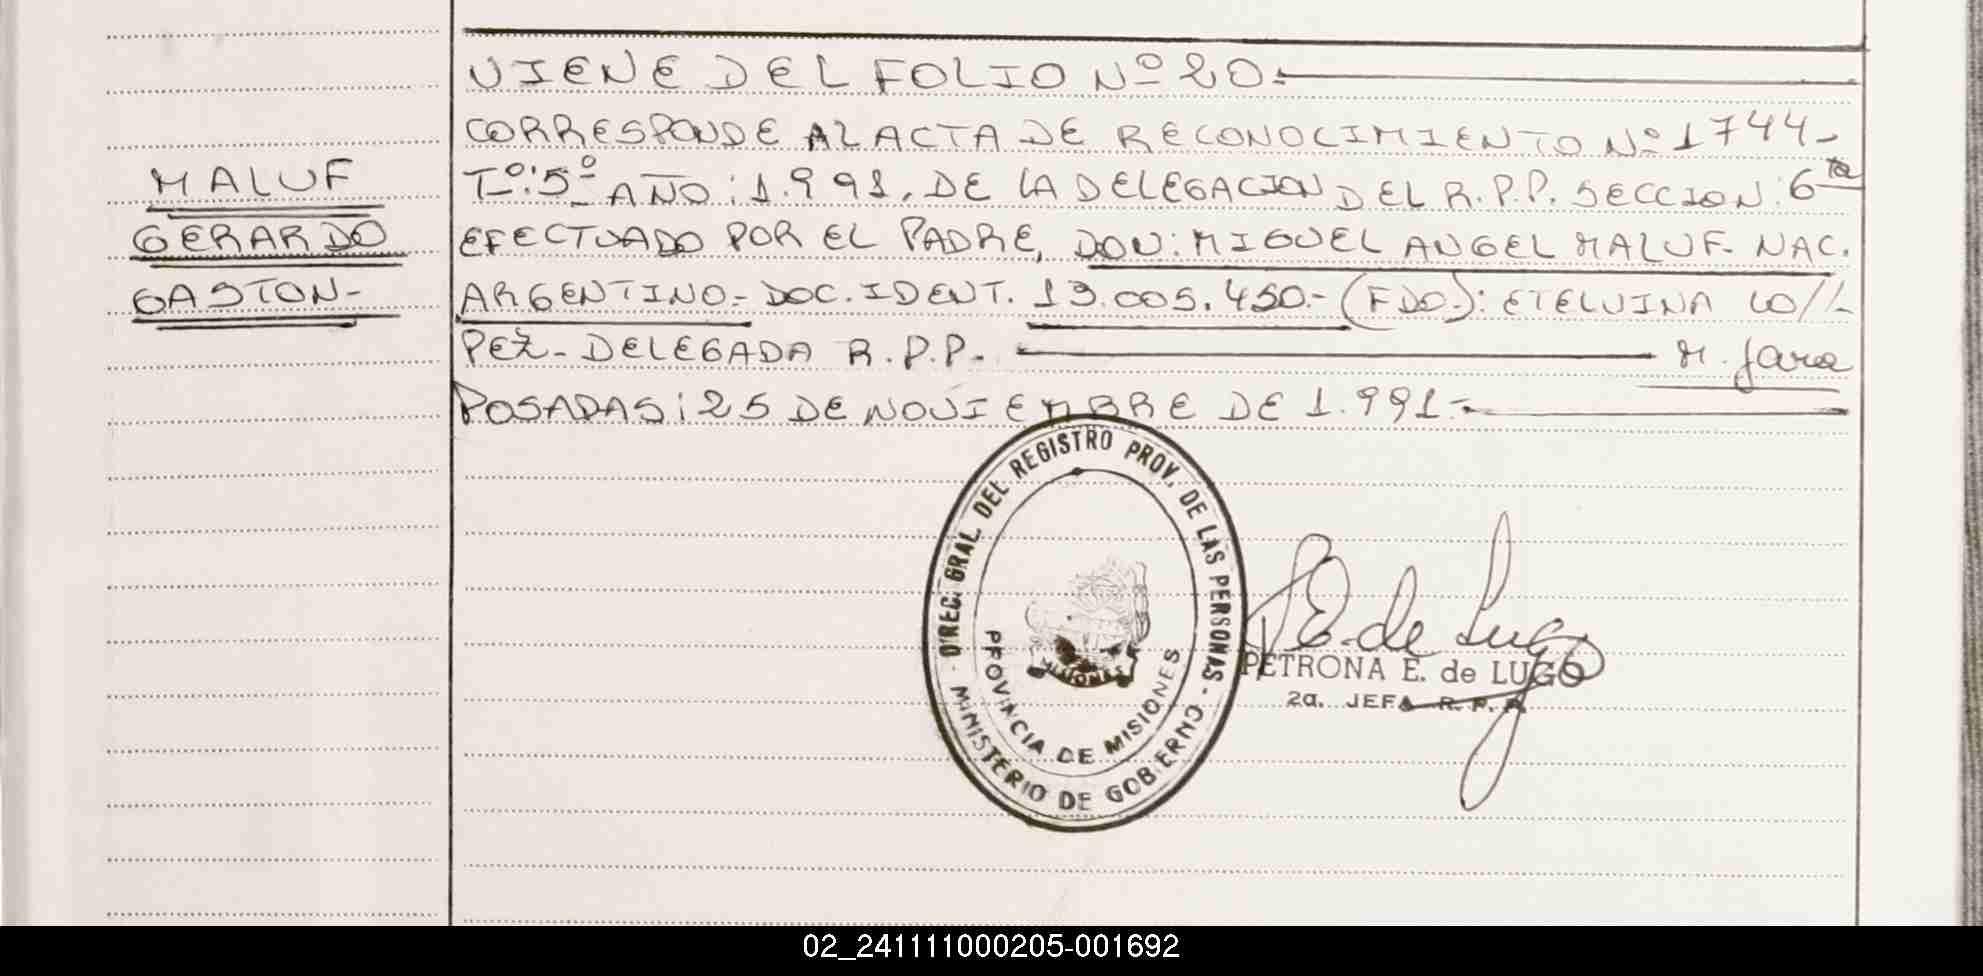 VIENE DEL FOLIO Nº 20.-
CORRESPONDE AL ACTA DE RECONOCIMIENTO Nº 1744-
MALUF
Tº: 5º AÑO: 1.991, DE LA DELEGACION DEL R.P.P. SECCION: 6ta
GERARDO
EFECTUADO POR EL PADRE, DON: MIGUEL ANGEL MALUF- NAC.
GASTON-
ARGENTINO.- DOC. IDENT. 13.005.450.- (FDO.): ETELVINA LO//-
PEZ- DELEGADA R.P.P.- M. Jara
POSADAS; 25 DE NOVIEMBRE DE 1.991.-
DIREC. GRAL. DEL REGISTRO PROV. DE LAS PERSONAS -
MINISTERIO DE GOBIERNO
PROVINCIA DE MISIONES
MISIONES
P E. de Lugo
PETRONA E. de LUGO
2a. JEFA R. P. P.
02_241111000205-001692